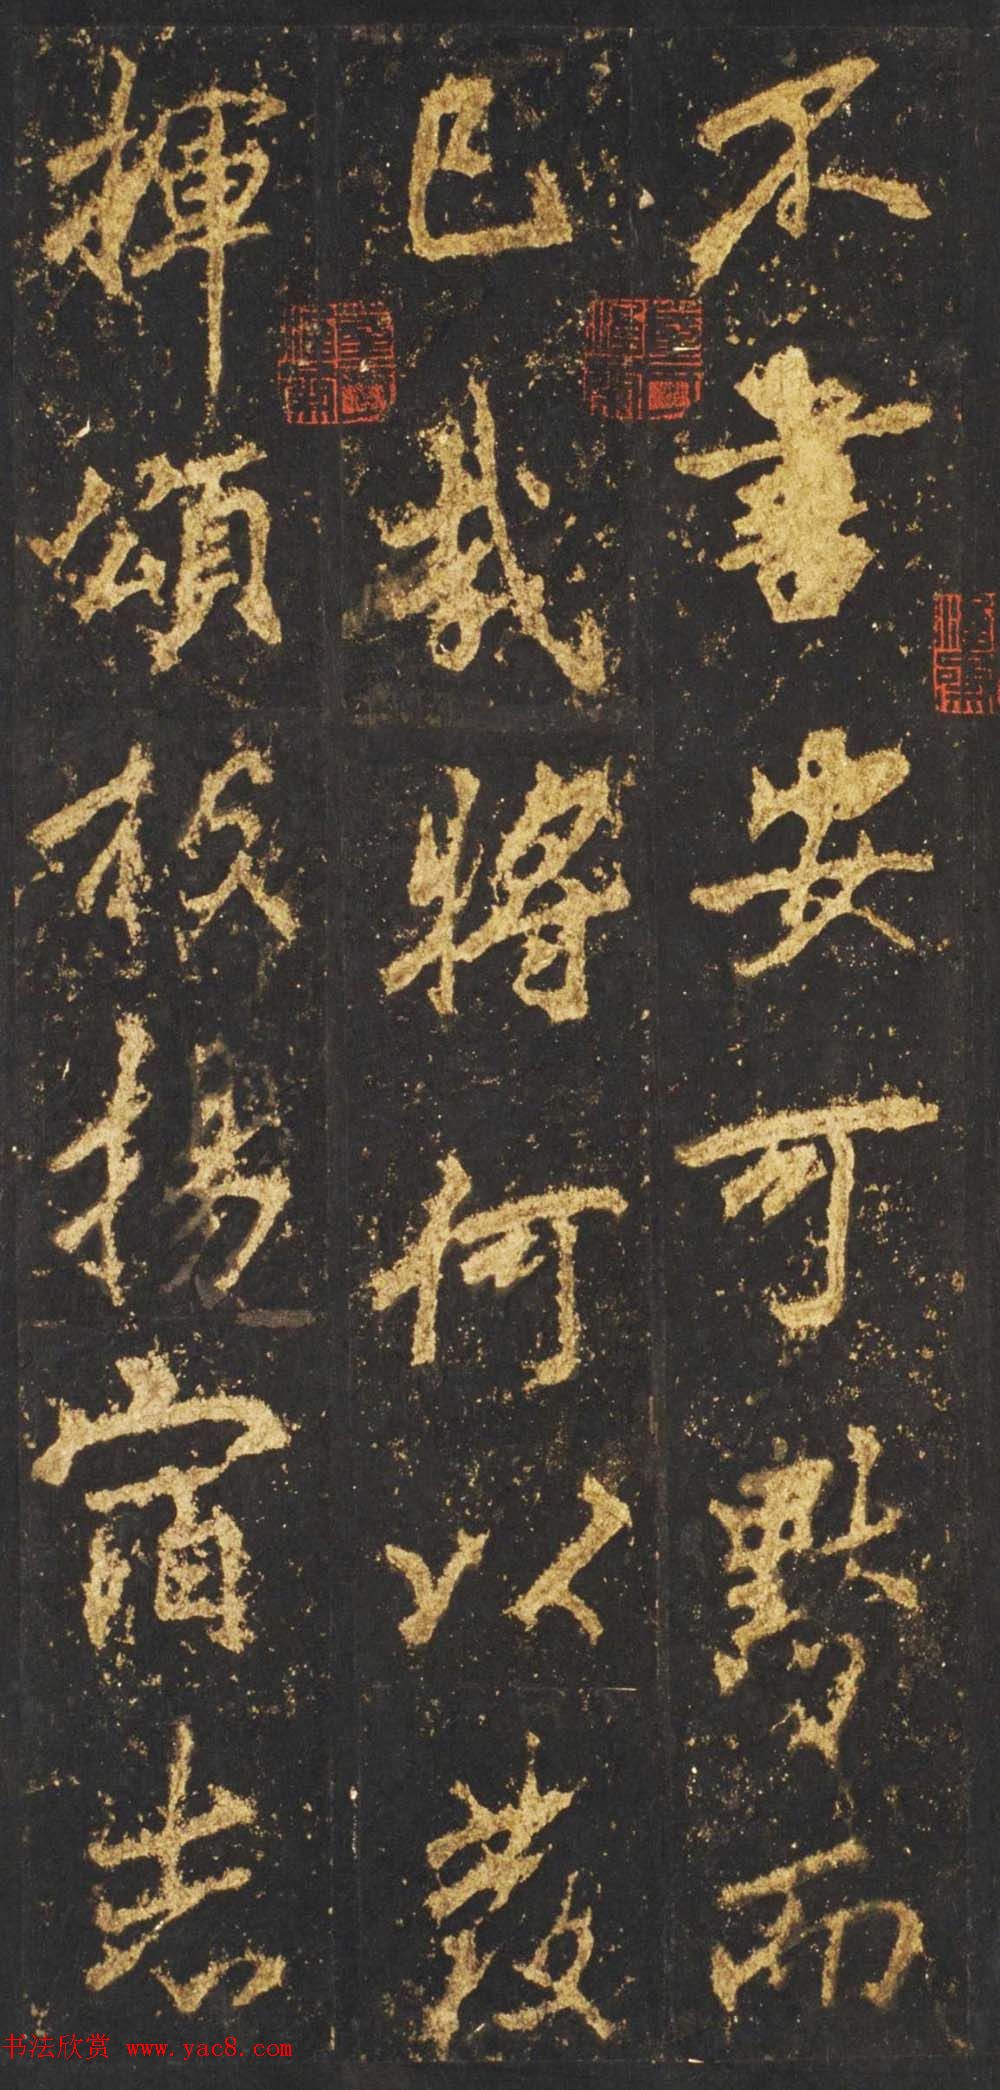 不書安可默而
已哉將何以發
揮頌揚宿志
书法欣赏 www.yac8.com